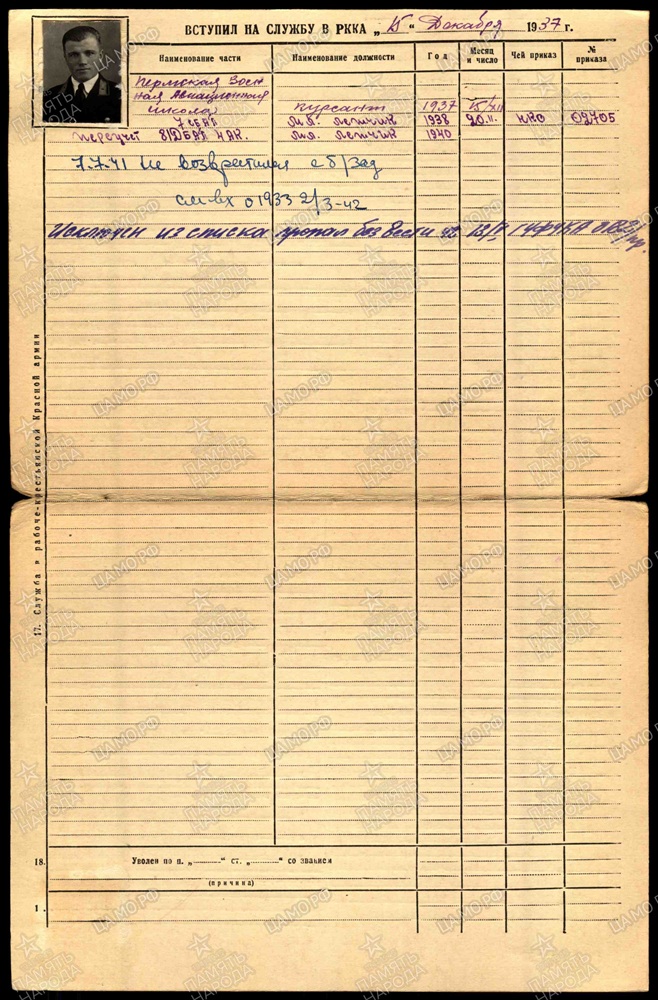 ВСТУПИЛ НА СЛУЖБУ В РККА „15“ Декабря 1937 г.
Наименование части Наименование должности Год Месяц и число Чей приказ № приказа
Пермская Воен
ная Авиационная
школа курсант 1937 15/XII
7 СБАП мл. летчик 1938 20.11. НКО 02705
переучет 81ДБАП мл. летчик 1940
7.7.41 Не возвратился с б/зад
см. вх 01933 2/3-42
Исключен из списка пропал без вести ГУФУКА
17. Служба в рабоче-крестьянской Красной армии
18. Уволен по п. „ “ ст. „ “ со званием
(причина)
1 .
ПАМЯТЬ НАРОДА
ЦАМО.РФ